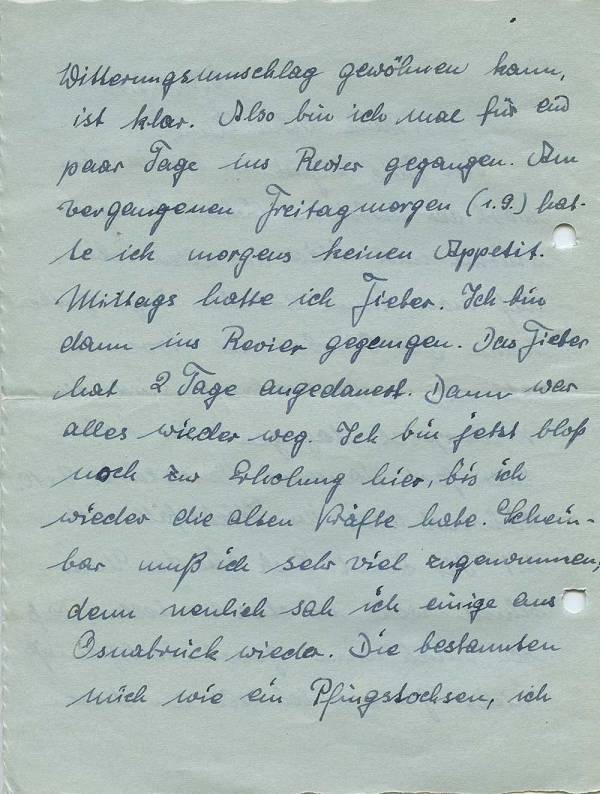 Witterungsumschlag gewöhnen kann,
ist klar. Also bin ich mal für ein
paar Tage ins Revier gegangen. Am
vergangenen Freitagmorgen (1.9.) hat-
te ich morgens keinen Appetit.
Mittags hatte ich Fieber. Ich bin
dann ins Revier gegangen. Das Fieber
hat 2 Tage angedauert. Dann war
alles wieder weg. Ich bin jetzt bloß
noch zur Erholung hier, bis ich
wieder die alten Kräfte habe. Schein-
bar muß ich sehr viel zugenommen,
denn neulich sah ich einige aus
Osnabrück wieder. Die bestaunten
mich wie ein Pfingstochsen, ich